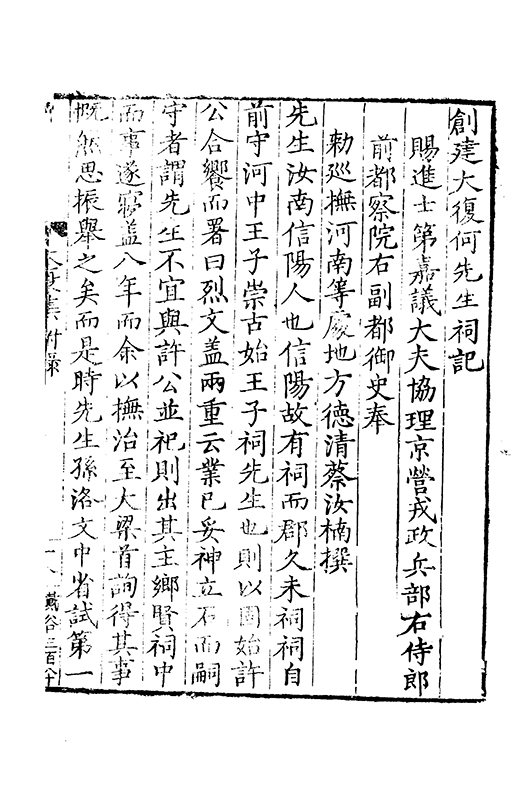 創建大復何先生祠記
賜進士第嘉議大夫協理京營戎政兵部右侍郎
前都察院右副都御史奉
勅廵撫河南等處地方德清蔡汝楠撰
先生汝南信陽人也信陽故有祠而郡久未祠祠自
前守河中王子崇古始王子祠先生也則以固始許
公合饗而署曰烈文盖兩重云業已妥神立石而嗣
守者謂先生不宜與許公並祀則出其主鄉賢祠中
而事遂寢盖八年而余以撫治至大梁首詢得其事
慨然思振舉之矣而是時先生孫洛文中省試第一
大復集附錄
一